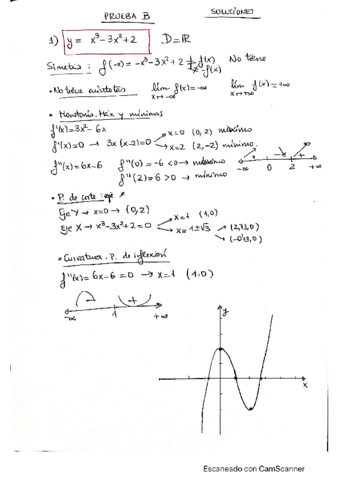 PRUEBA B
SOLUCIONES
1) y = x³-3x²+2 D=ℝ
Simetría: f(-x) = -x³-3x²+2 ≠ f(x) ≠ -f(x) No tiene
• No tiene asíntotas lím f(x)=-∞ lím f(x)=+∞
x→-∞ x→+∞
• Monotonía. Máx y mínimos
f'(x)=3x²-6x
f'(x)=0 → 3x(x-2)=0 x=0 (0,2) máximo
x=2 (2,-2) mínimo.
f''(x)=6x-6 f''(0)=-6<0 → máximo
f''(2)=6>0 → mínimo
-∞ 0 2 +∞
• P. de corte: eje
Eje Y → x=0 → (0,2)
Eje X → x³-3x²+2=0 x=1 (1,0)
x=1±√3 (2,73,0)
(-0,73,0)
• Curvatura. P. de inflexión
f''(x)=6x-6=0 → x=1 (1,0)
- +
-∞ 1 +∞
y
x
Escaneado con CamScanner